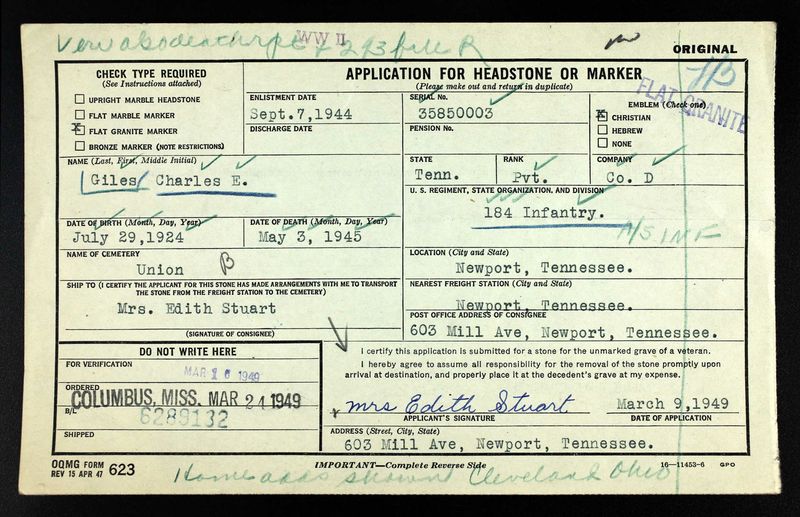 WW II
ORIGINAL
CHECK TYPE REQUIRED
(See Instructions attached)
UPRIGHT MARBLE HEADSTONE
FLAT MARBLE MARKER
x FLAT GRANITE MARKER
BRONZE MARKER (NOTE RESTRICTIONS)
APPLICATION FOR HEADSTONE OR MARKER
(Please make out and return in duplicate)
ENLISTMENT DATE
Sept.7,1944
DISCHARGE DATE
SERIAL No.
35850003
PENSION No.
EMBLEM (Check one)
x CHRISTIAN
HEBREW
NONE
FLAT GRANITE
NAME (Last, First, Middle Initial)
Giles Charles E.
STATE
Tenn.
RANK
Pvt.
COMPANY
Co. D
U. S. REGIMENT, STATE ORGANIZATION, AND DIVISION
184 Infantry.
DATE OF BIRTH (Month, Day, Year)
July 29,1924
DATE OF DEATH (Month, Day, Year)
May 3, 1945
NAME OF CEMETERY
Union
LOCATION (City and State)
Newport, Tennessee.
SHIP TO (I CERTIFY THE APPLICANT FOR THIS STONE HAS MADE ARRANGEMENTS WITH ME TO TRANSPORT
THE STONE FROM THE FREIGHT STATION TO THE CEMETERY)
Mrs. Edith Stuart
(SIGNATURE OF CONSIGNEE)
NEAREST FREIGHT STATION (City and State)
Newport, Tennessee.
POST OFFICE ADDRESS OF CONSIGNEE
603 Mill Ave, Newport, Tennessee.
DO NOT WRITE HERE
FOR VERIFICATION
MAR 16 1949
ORDERED
COLUMBUS, MISS. MAR 24 1949
B/L
6289132
SHIPPED
I certify this application is submitted for a stone for the unmarked grave of a veteran.
I hereby agree to assume all responsibility for the removal of the stone promptly upon
arrival at destination, and properly place it at the decedent's grave at my expense.
x Mrs Edith Stuart
APPLICANT'S SIGNATURE
March 9,1949
DATE OF APPLICATION
ADDRESS (Street, City, State)
603 Mill Ave, Newport, Tennessee.
OQMG FORM
REV 15 APR 47 623
IMPORTANT—Complete Reverse Side
16—11453-6 GPO
Home adds shown Cleveland Ohio